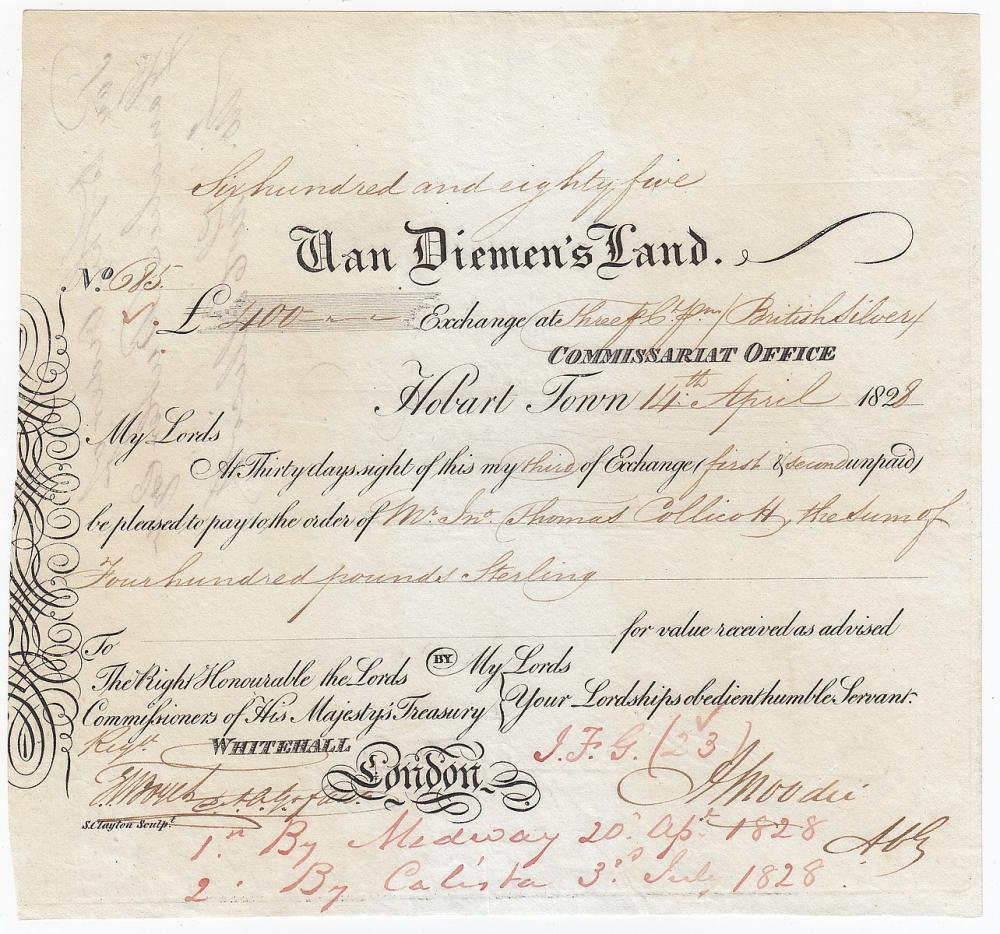 Six hundred and eighty five
Van Diemen's Land.
No. 685.
£ 400 Exchange at Three p Ct Pm (British Silver)
COMMISSARIAT OFFICE
Hobart Town 14th April 1828
My Lords
At Thirty days sight of this my third of Exchange (first & second unpaid)
be pleased to pay to the order of Mr Jno Thomas Collicott, the sum of
Four hundred pounds Sterling
for value received as advised
To
The Right Honourable the Lords BY My Lords
Commissioners of His Majesty's Treasury Your Lordships obedient humble Servant.
WHITEHALL
London
J.F.G. (23)
Moodie
S. Clayton Sculpt.
1st By Medway 20 Apl 1828
2d By Calista 3d July 1828